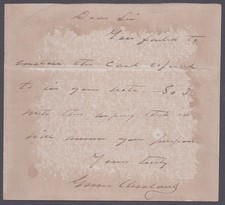 Dear Sir
You failed to
enclose the Card refered
to in your note. So I
write this hoping that it
will answer your purpose
Yours truly